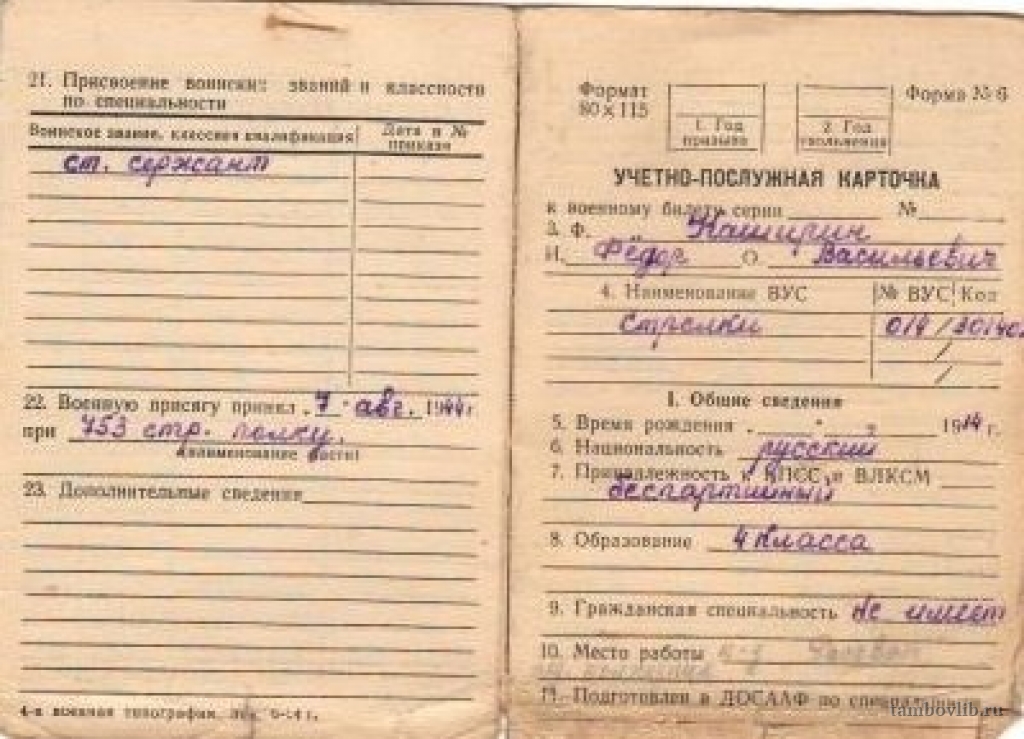 21. Присвоение воинских званий и классности
по специальности
Воинское звание, классная квалификация
Дата и №
приказа
ст. сержант
22. Военную присягу принял 7 авг. 1944 г.
при 753 стр. полку.
(наименование части)
23. Дополнительные сведения
4-я военная типография.
Формат
80×115
1. Год
призыва
2. Год
увольнения
Форма № 6
УЧЕТНО-ПОСЛУЖНАЯ КАРТОЧКА
к военному билету серии № 
3. Ф. Каширин
И. Фёдор О. Васильевич
4. Наименование ВУС № ВУС Код
стрелки 014/
I. Общие сведения
5. Время рождения 1914 г.
6. Национальность русский
7. Принадлежность к КПСС и ВЛКСМ
беспартийный
8. Образование 4 класса
9. Гражданская специальность не имеет
10. Место работы
11. Подготовлен в ДОСААФ по специальности
tambovlib.ru